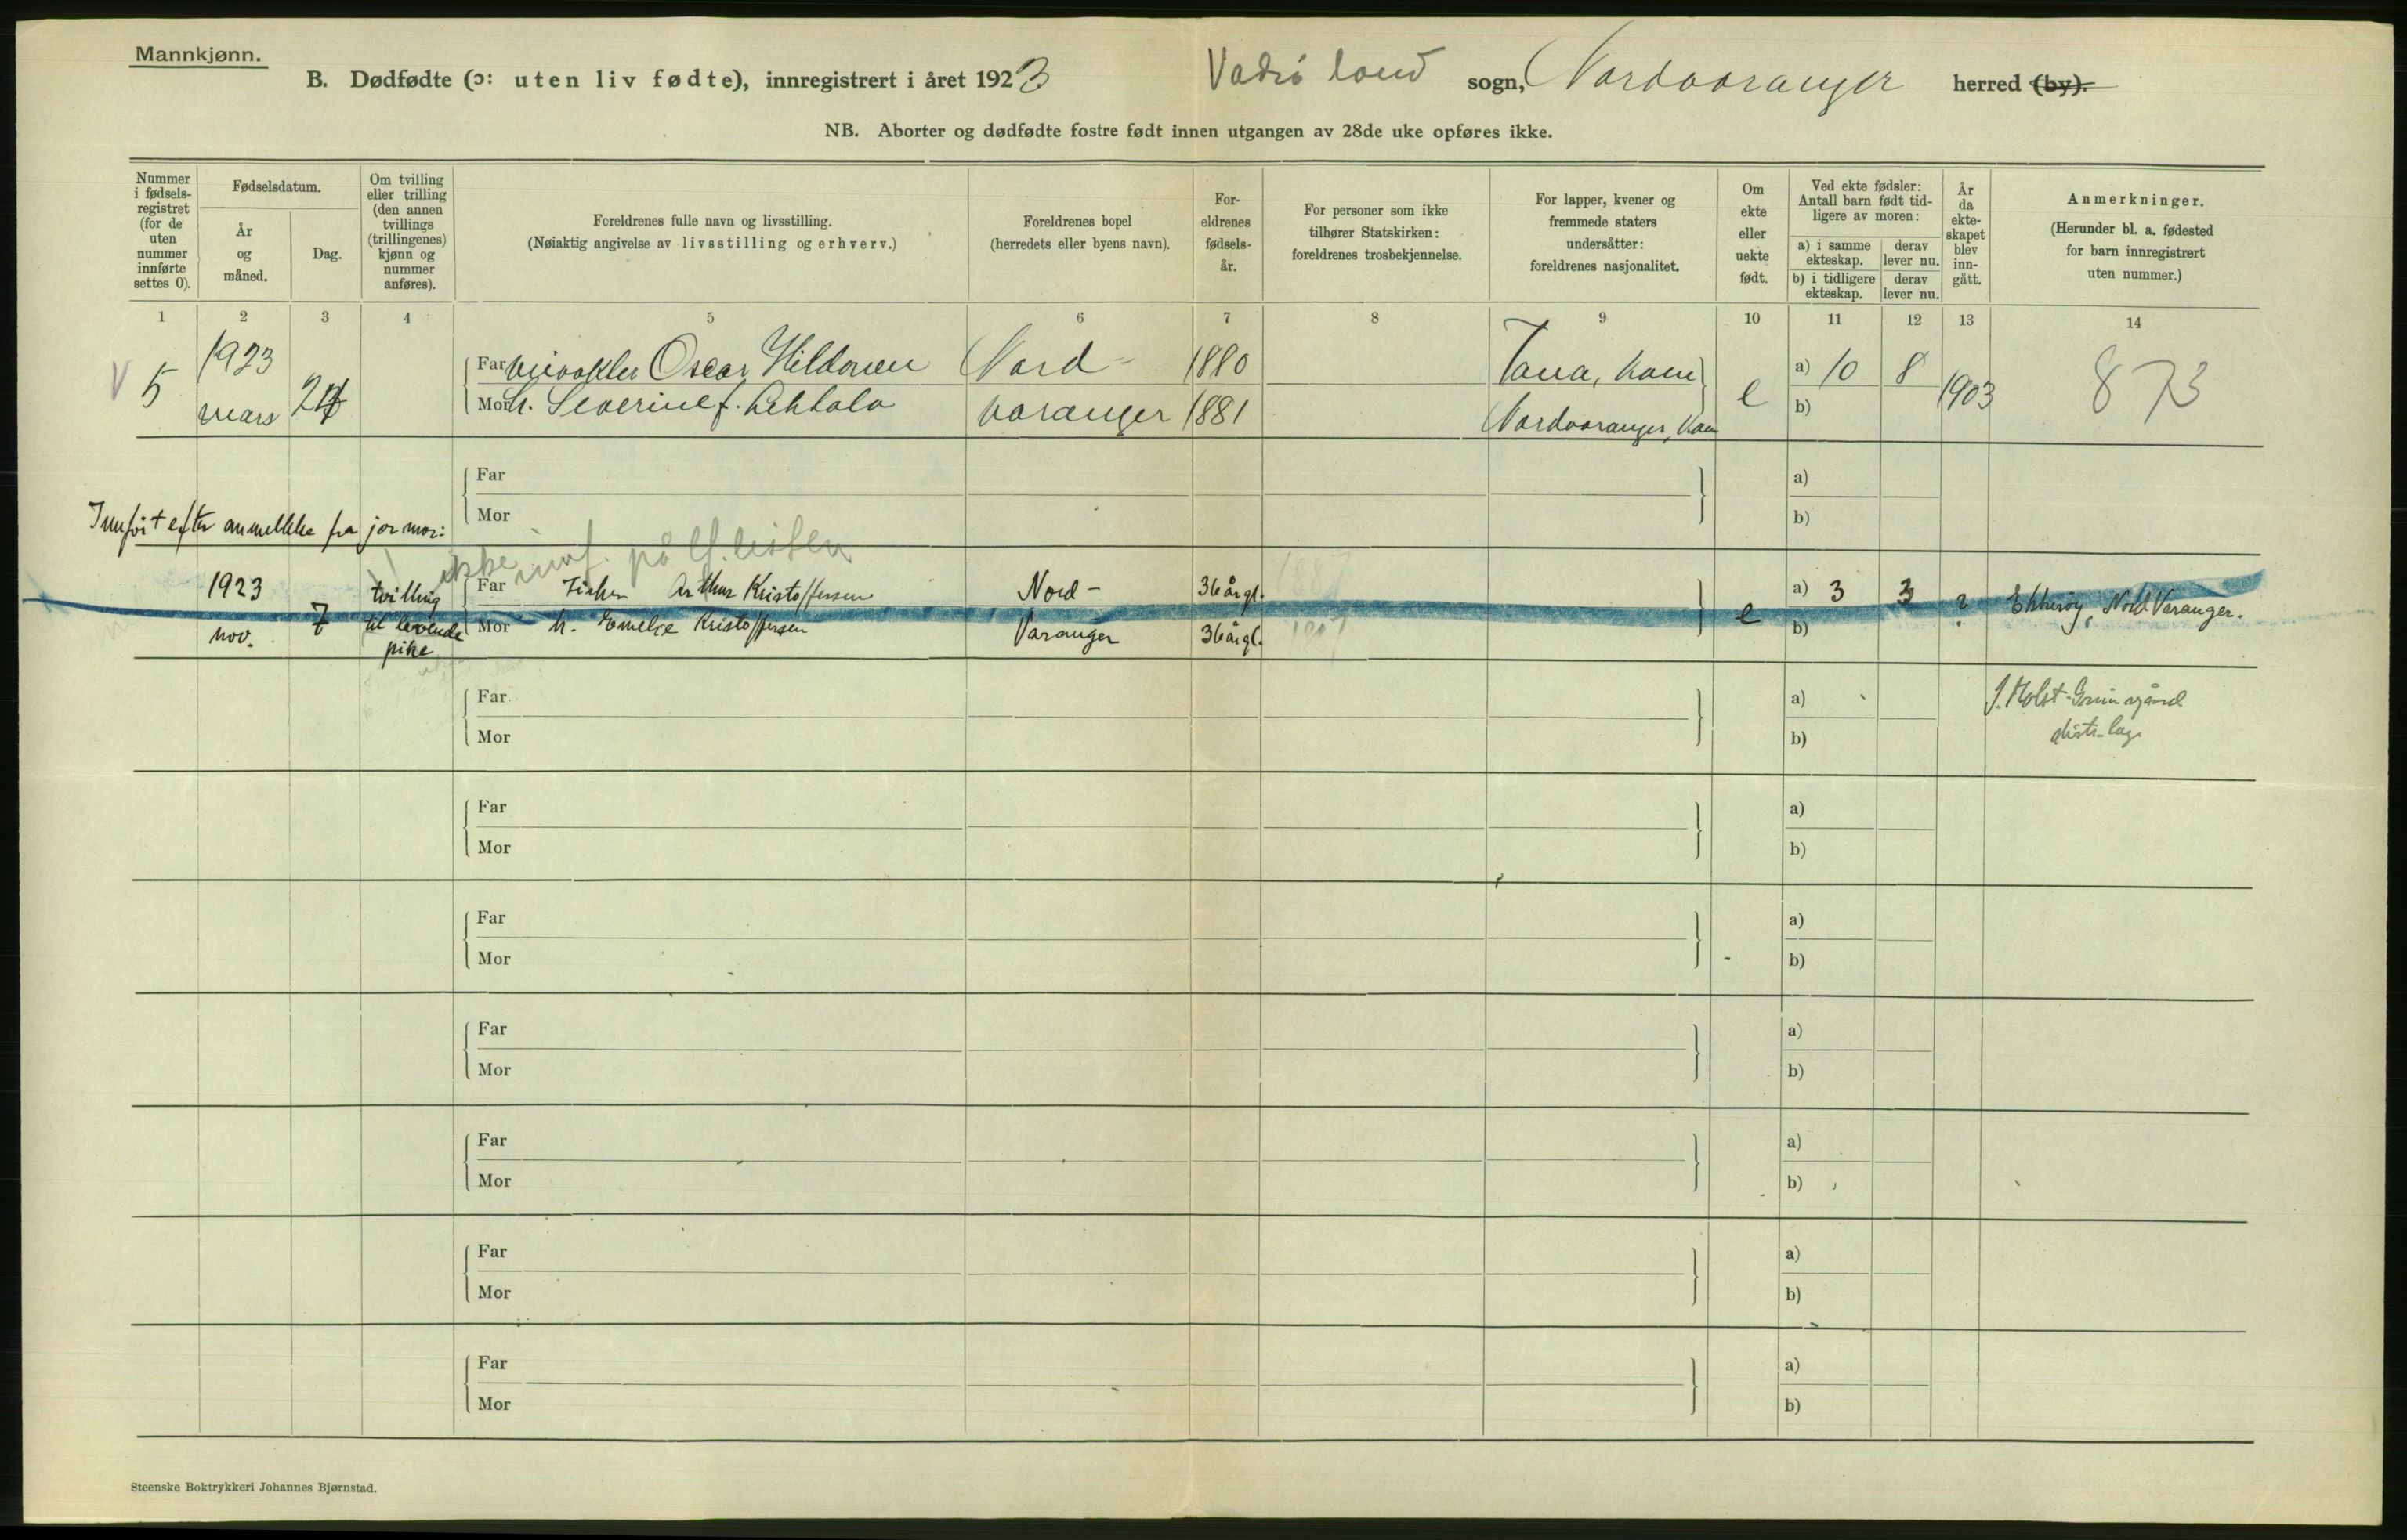 Mannkjønn.
B. Dødfødte (ɔ: uten liv fødte), innregistrert i året 1923 Vadsö land sogn, Nordvaranger herred (by).
NB. Aborter og dødfødte fostre født innen utgangen av 28de uke opføres ikke.
Nummer i fødselsregistret (for de uten nummer innførte settes 0).
Fødselsdatum.
År og måned.
Dag.
Om tvilling eller trilling (den annen tvillings (trillingenes) kjønn og nummer anføres).
Foreldrenes fulle navn og livsstilling.
(Nøiaktig angivelse av livsstilling og erhverv.)
Foreldrenes bopel
(herredets eller byens navn).
Foreldrenes fødselsår.
For personer som ikke tilhører Statskirken: foreldrenes trosbekjennelse.
For lapper, kvener og fremmede staters undersåtter: foreldrenes nasjonalitet.
Om ekte eller uekte født.
Ved ekte fødsler: Antall barn født tidligere av moren:
a) i samme ekteskap. derav lever nu.
b) i tidligere ekteskap. derav lever nu.
År da ekteskapet blev inngått.
Anmerkninger.
(Herunder bl. a. fødested for barn innregistrert uten nummer.)
1 2 3 4 5 6 7 8 9 10 11 12 13 14
V 5 1923 mars 24
Far Oscar Hildonen Nord- 1880 Tana, kven e a) 10 8 1903 873
Mor h. Severine f. varanger 1881 Nordvaranger, kven b)
Far a)
Mor b)
Innført efter anmeldelse fra jormor:
ikke innf. på lf. listen
1923 nov. 7 tvilling til levende pike
Far Fisker Arthur Kristoffersen Nord- 36 årgl. 1887 e a) 3 3 ? Ekkerøy, Nord Varanger.
Mor h. Emelie Kristoffersen Varanger 36 årgl. 1887 b)
Far a)
Mor b)
J. Holst-
distr. læge
Far a)
Mor b)
Far a)
Mor b)
Far a)
Mor b)
Far a)
Mor b)
Far a)
Mor b)
Far a)
Mor b)
Steenske Boktrykkeri Johannes Bjørnstad.